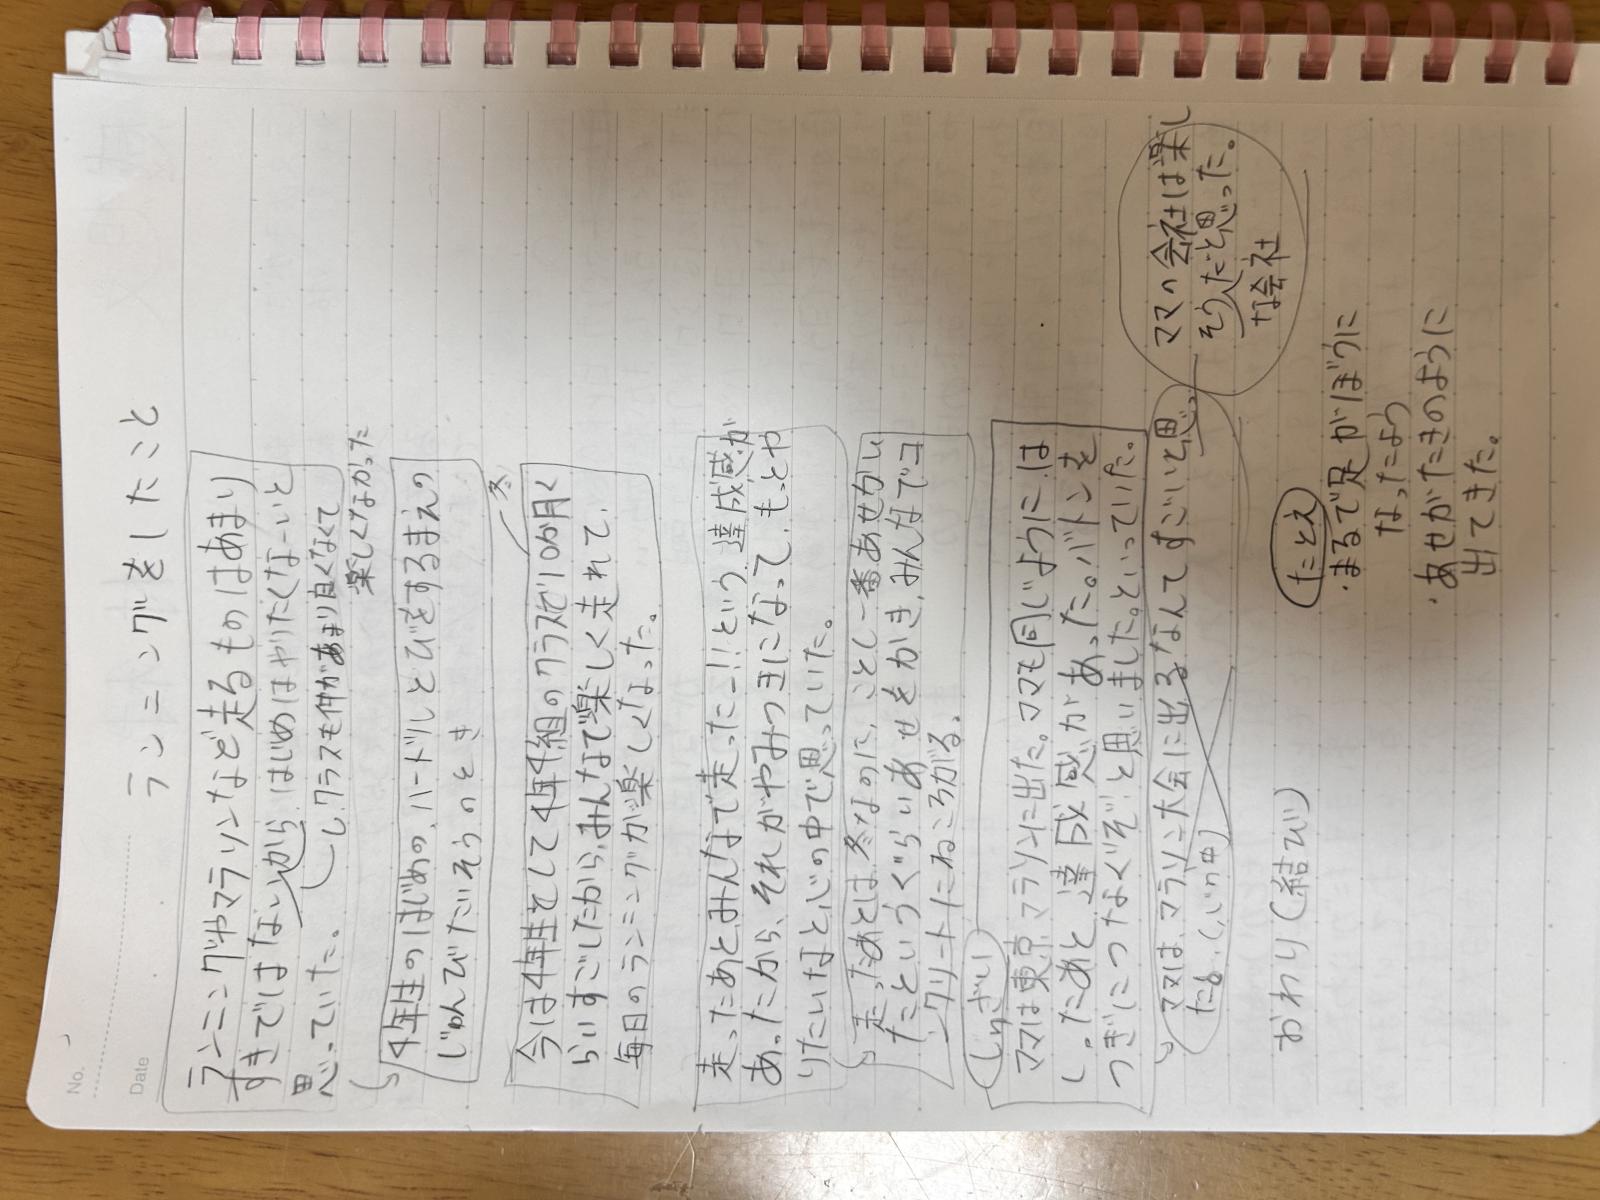 No.
Date
ランニングをしたこと
ランニングやマラソンなど走るものはあまり
すきではないから、はじめはやりたくなーいと
思っていた。
クラスも仲があまり良くなくて
楽しくなかった
4年生のはじめの、ハードルとびをするまえの
じゅんびたいそうのとき
冬
今は4年生として4年4組のクラスで10か月く
らいすごしたから、みんなで楽しく走れて、
毎日のランニングが楽しくなった。
走ったあと、みんなで走ったー!!という達成感が
あったから、それがやみつきになって、もっとや
りたいなと心の中で思っていた。
走ったあとは、冬なのに、ことし一番あせかい
たというぐらいあせをかき、みんなでコ
ンクリートにねころがる。
しゅざい
ママは東京マラソンに出た。ママも同じように、は
しったあと、達成感があった。バトンを
つぎにつなぐぞ!と思いました。といっていた。
ママは、マラソン大会に出るなんてすごいと思っ
たよ。(心の中)
ママの会社は楽し
そうだと思った。
な会社
おわり(結び)
たとえ
・まるで足がぼうに
なったよう
・あせがたきのように
出てきた。